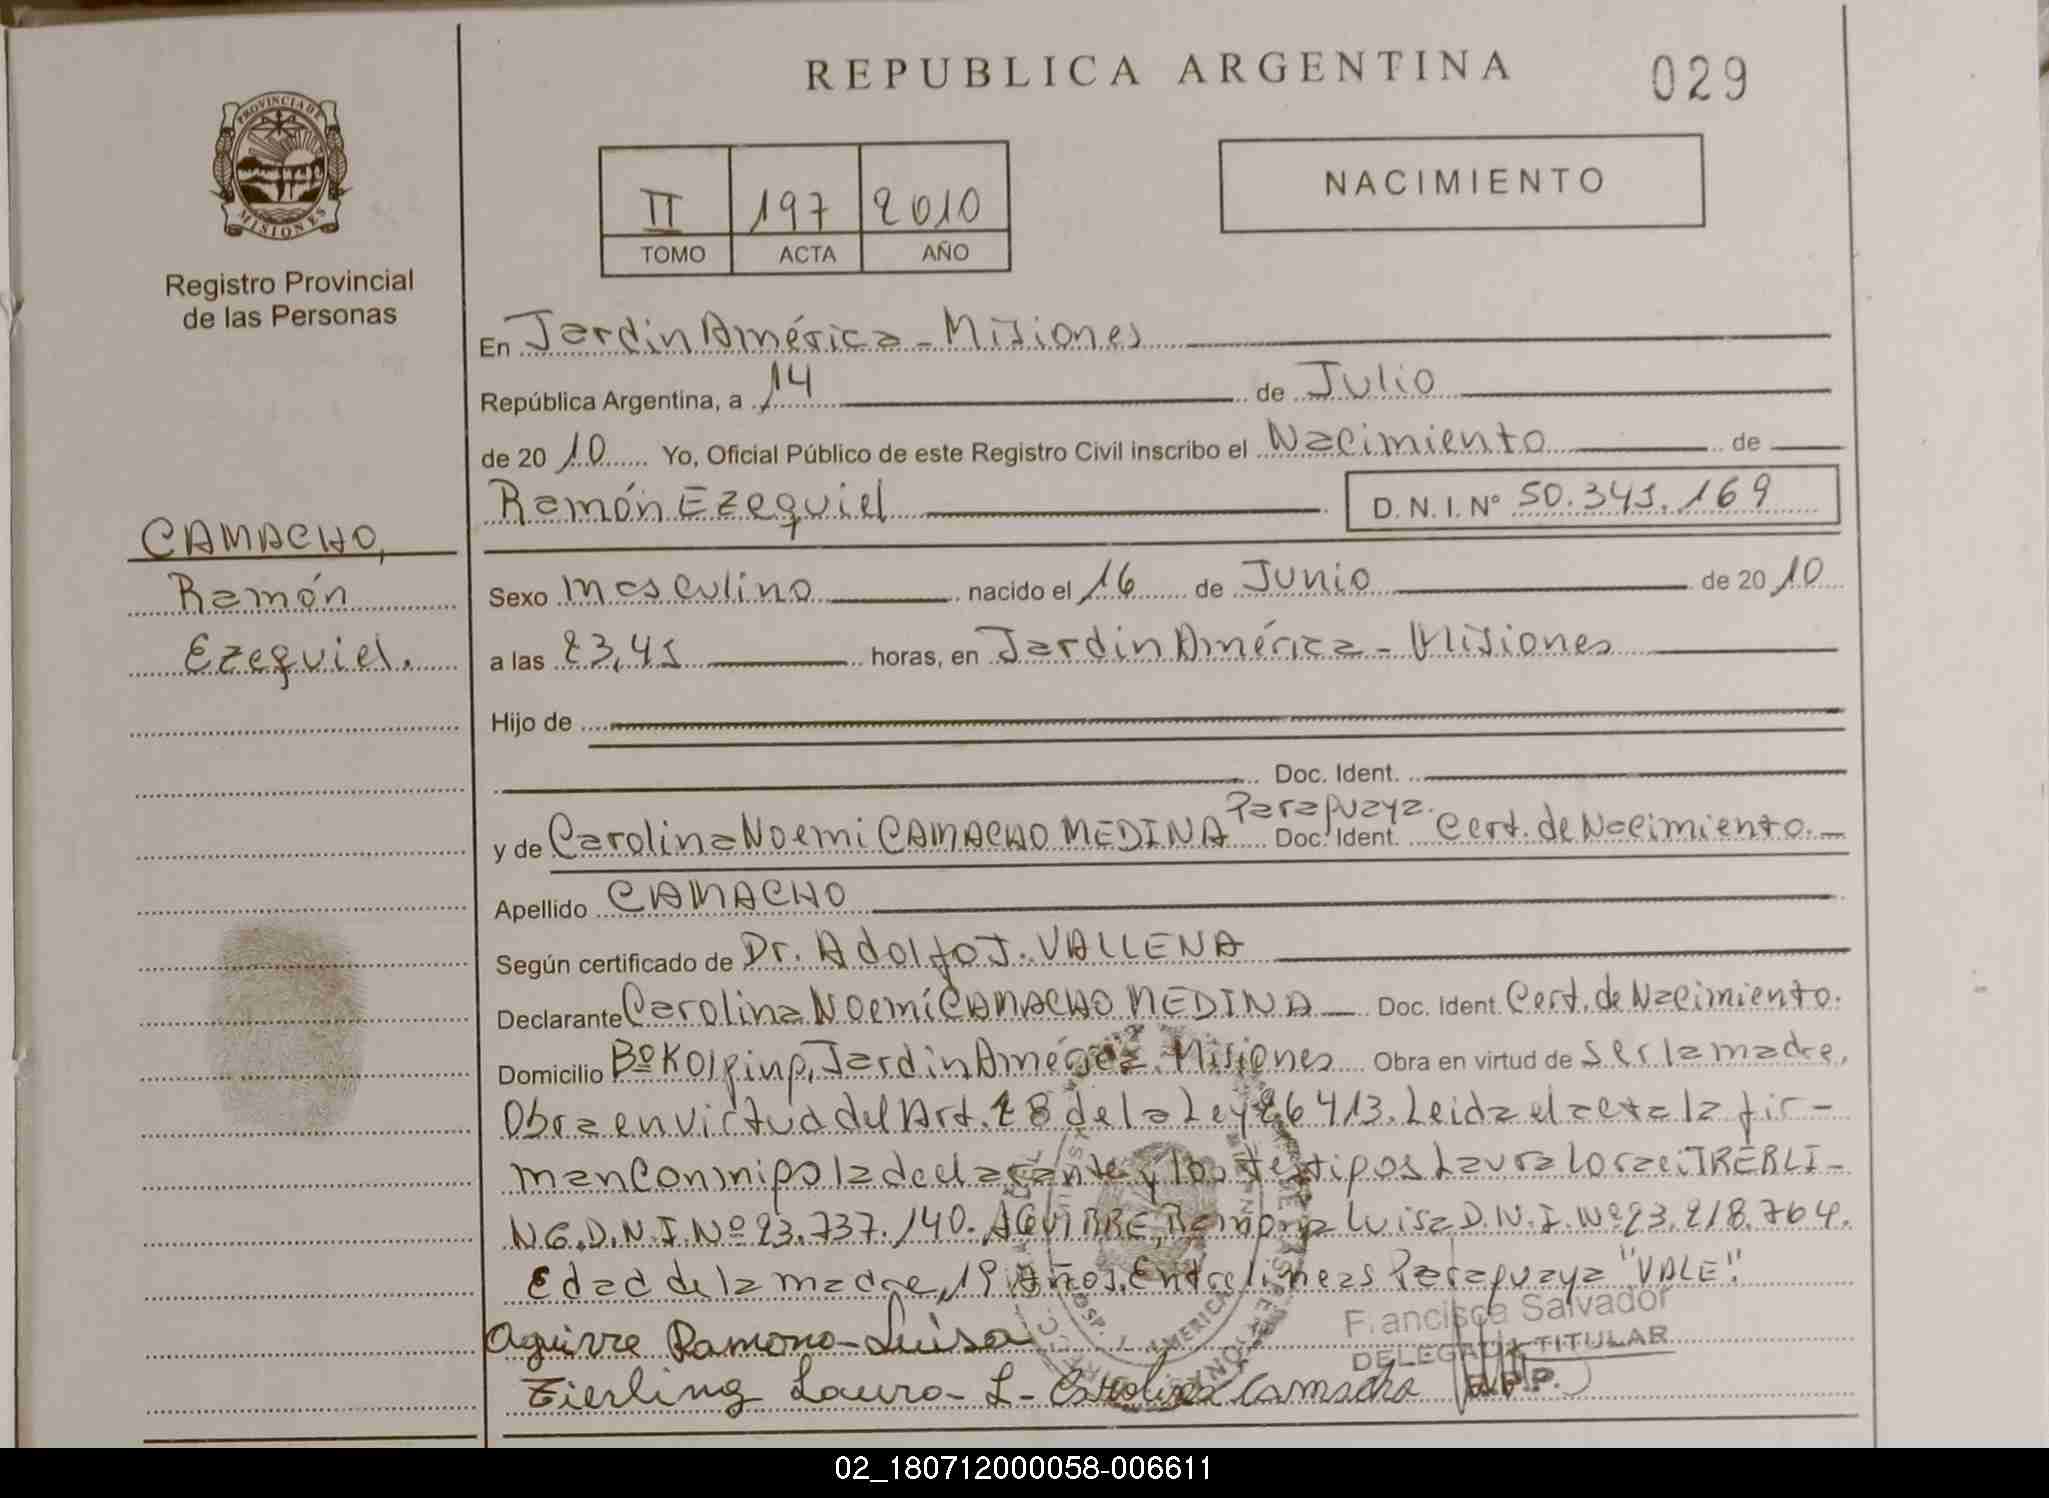 REPUBLICA ARGENTINA
029
PROVINCIA DE
MISIONES
Registro Provincial
de las Personas
II 197 2010
TOMO ACTA AÑO
NACIMIENTO
En Jardin América - Misiones
República Argentina, a 14 de Julio
de 2010 Yo, Oficial Público de este Registro Civil inscribo el Nacimiento de
Ramón Ezequiel
D.N.I. Nº 50.341.169
CAMACHO,
Ramón
Ezequiel.
Sexo masculino nacido el 16 de Junio de 2010
a las 23,45 horas, en Jardin América - Misiones
Hijo de
Doc. Ident.
Paraguaya.
y de Carolina Noemi CAMACHO MEDINA Doc. Ident. Cert. de Nacimiento.
Apellido CAMACHO
Según certificado de Dr. Adolfo J. VALLENA
Declarante Carolina Noemí CAMACHO MEDINA Doc. Ident. Cert. de Nacimiento.
Domicilio Bº Kolping, Jardin América, Misiones Obra en virtud de ser la madre,
Obra en virtud del Art. 28 de la Ley 26413. Leida el acta la fir-
man conmigo la declarante y los testigos Laura
NG. D.N.I. Nº 23.737.140. AGUIRRE, Ramona Luisa D.N.I. Nº 23.218.764.
Edad de la madre, 19 Años. Entrelineas Paraguaya "VALE".
Francisca Salvador
DELEGADA TITULAR
R.P.P.
Aguirre Ramona Luisa
Zierling Laura - L - Carolina Camacho
02_180712000058-006611